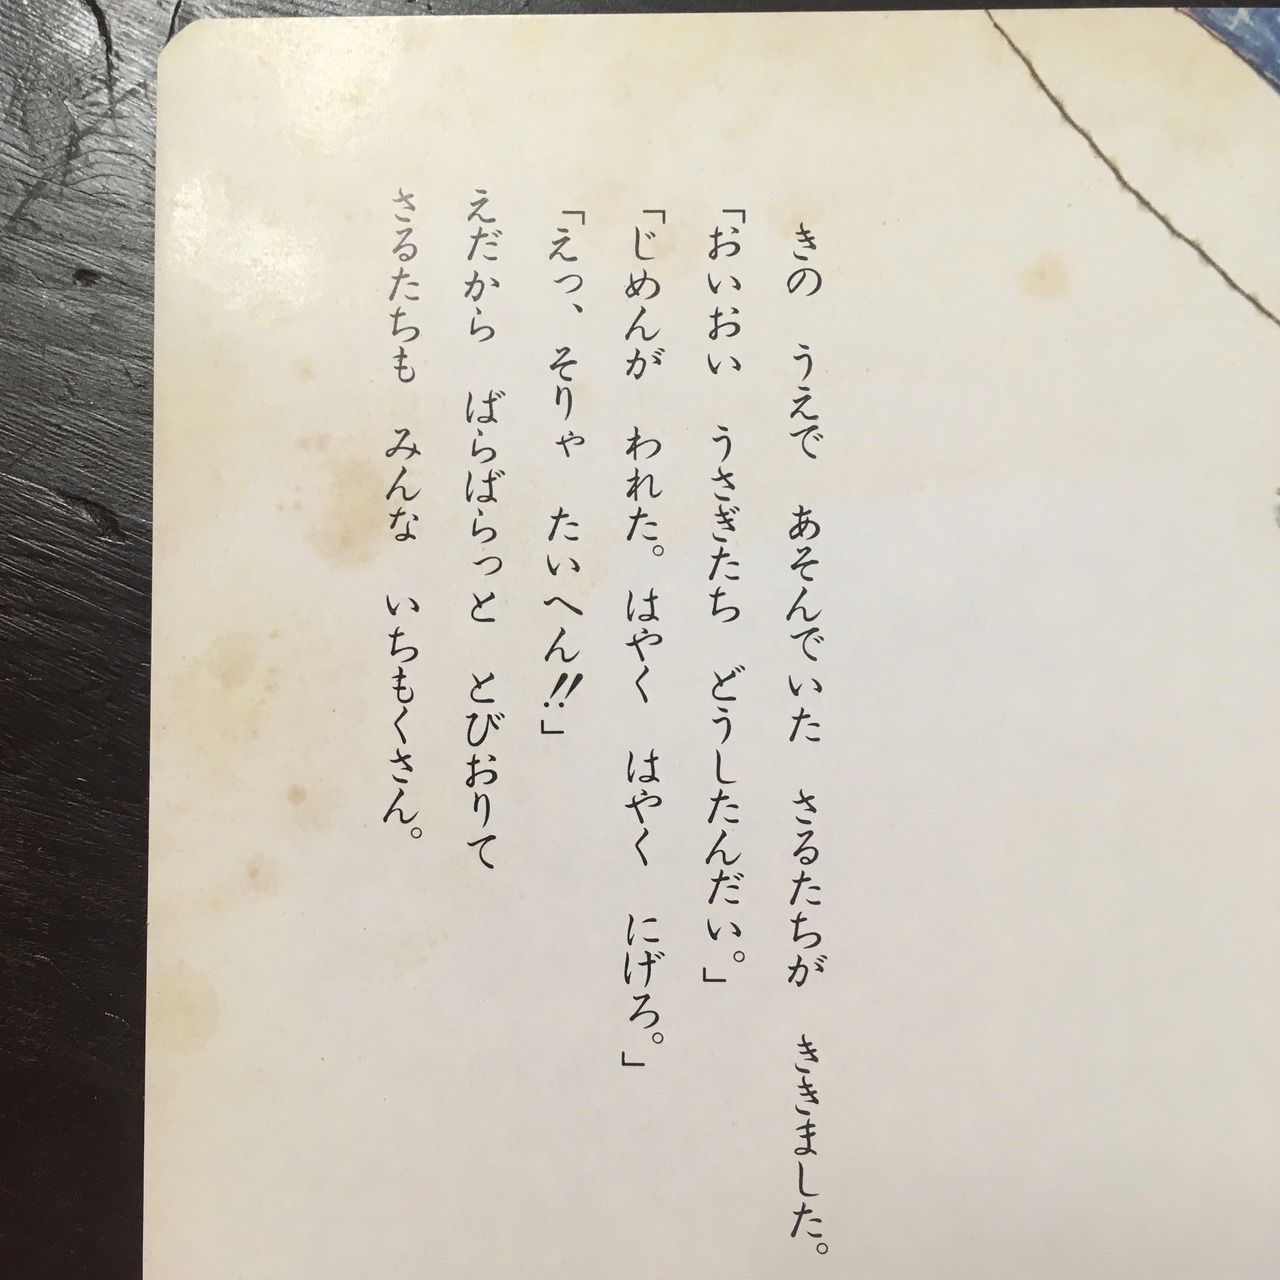 きの　うえで　あそんでいた　さるたちが　ききました。
「おいおい　うさぎたち　どうしたんだい。」
「じめんが　われた。はやく　はやく　にげろ。」
「えっ、そりゃ　たいへん!!」
えだから　ばらばらっと　とびおりて
さるたちも　みんな　いちもくさん。